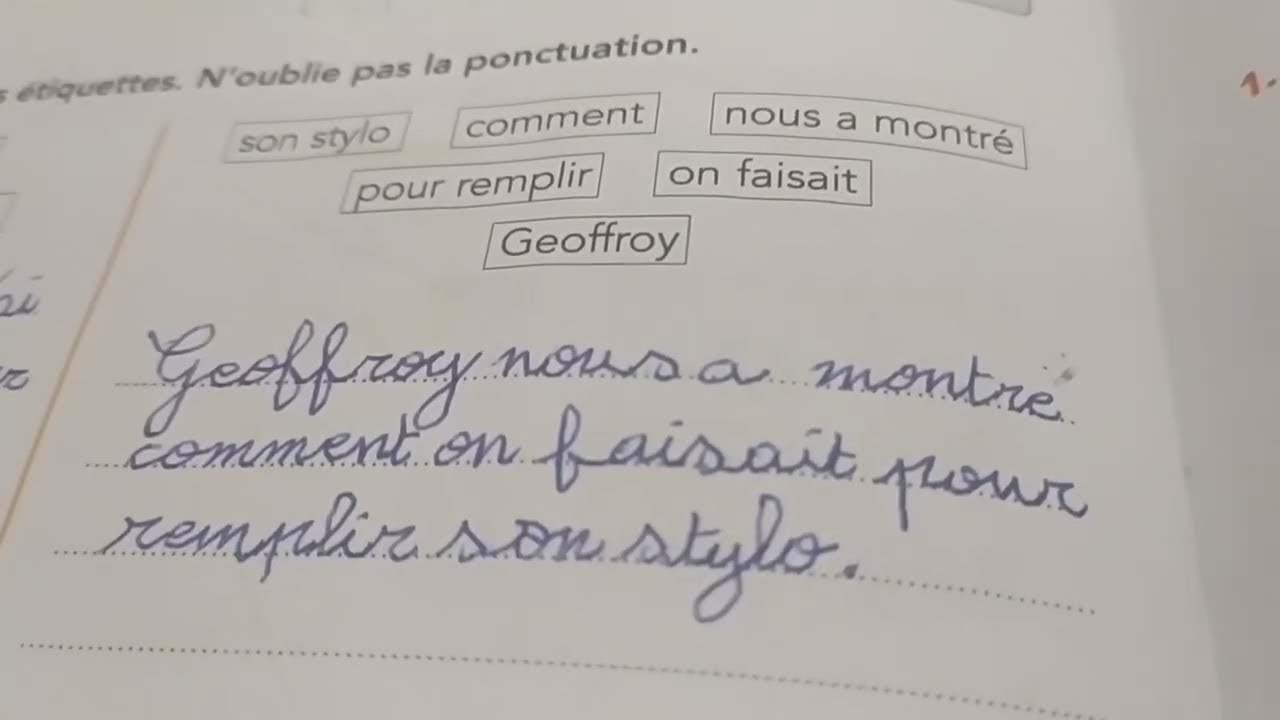 étiquettes. N'oublie pas la ponctuation.
1.
son stylo comment nous a montré
pour remplir on faisait
Geoffroy
Geoffroy nous a montré
comment on faisait pour
remplir son stylo.